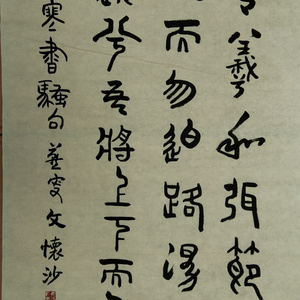 羲和弭節
而勿迫路漫
兮吾將上下而
寒書騷句 燕叟文懷沙